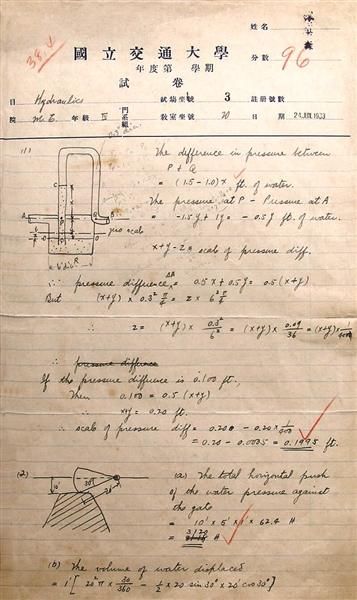 38,4
姓名
國立交通大學
年度第 學期
分數 96
試卷
目 Hydraulics 試場坐號 3 註冊號數
院 M.E. 年級 III 教室坐號 20 日期 24 JUN 1933
(1) The difference in pressure between
P & Q
= (1.5-1.0)x ft. of water.
The pressure at P - Pressure at A
= -1.5y + 1y = -0.5y ft. of water.
x+y-z = scale of pressure diff.
C
B
A
zero
scale
R
6" dia.
∴ pressure difference = 0.5x + 0.5y = 0.5(x+y)
But (x+y) x 0.3² π/4 = z x 6² π/4
z = (x+y) x 0.3²/6² = (x+y) 0.09/36 = (x+y) x 1/400
∴ pressure difference
If the pressure difference is 0.100 ft.,
Then 0.100 = 0.5(x+y)
x+y = 0.20 ft.
∴ scale of pressure diff = 0.200 - 0.20 x 1/400
= 0.20 - 0.0005 = 0.1995 ft.
(2) (a) The total horizontal push
of the water pressure against
the gate
= 10' x 5' x 1' x 62.4 #
= 3120 #
10'
30°
20'
(b) The volume of water displaced
= 1' [ 20² π x 30/360 - 1/2 x 20 sin 30° x 20 cos 30° ]